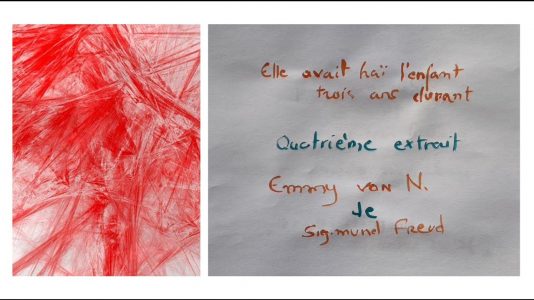 Elle avait haï l'enfant
trois ans durant
Quatrième extrait
Emmy von N.
de
Sigmund Freud